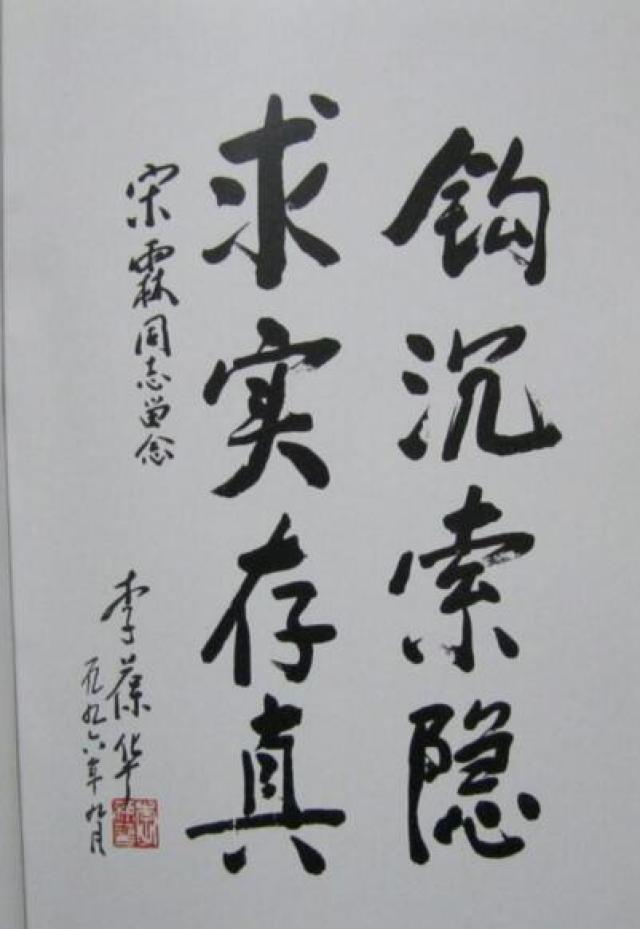 钩沉索隐
求实存真
宋霖同志留念
李葆华
一九九六年九月